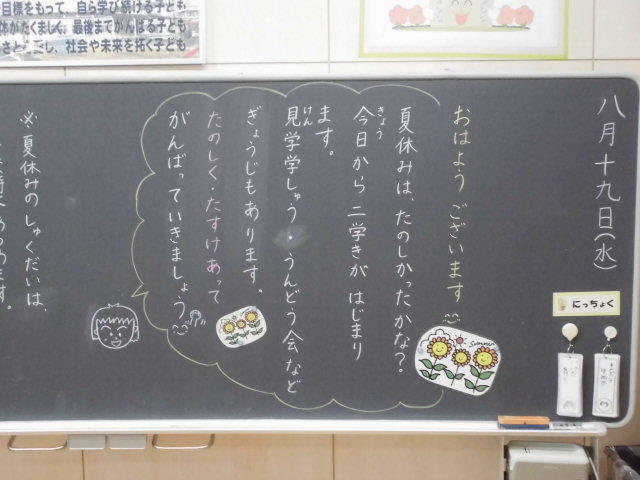 目標をもって、自ら学び続ける子ども
たくましく、最後までがんばる子ども
し、社会や未来を拓く子ども
八月十九日(水)
にっちょく
おはようございます
夏休みは、たのしかったかな?
今日から二学きがはじまり
きょう
ます。
見学学しゅう・うんどう会など
けん
ぎょうじもあります。
たのしく・たすけあって
がんばっていきましょう
Summer
※夏休みのしゅくだいは、